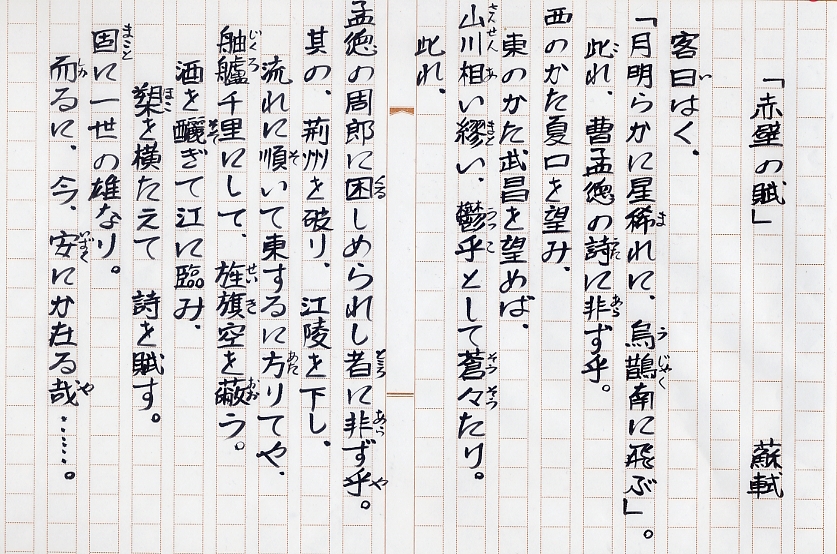 「赤壁の賦」 蘇軾
客曰はく、
「月明らかに星稀れに、烏鵲南に飛ぶ」。
此れ、曹孟徳の詩に非ず乎。
西のかた夏口を望み、
東のかた武昌を望めば、
山川相い繆い、鬱乎として蒼々たり。
此れ、
孟徳の周郎に困しめられし者に非ず乎。
其の、荊州を破り、江陵を下し、
流れに順いて東するに方りてや、
舳艫千里にして、旌旗空を蔽う。
酒を釃ぎて江に臨み、
槊を横たえて 詩を賦す。
固に一世の雄なり。
而るに、今、安にか在る哉……。